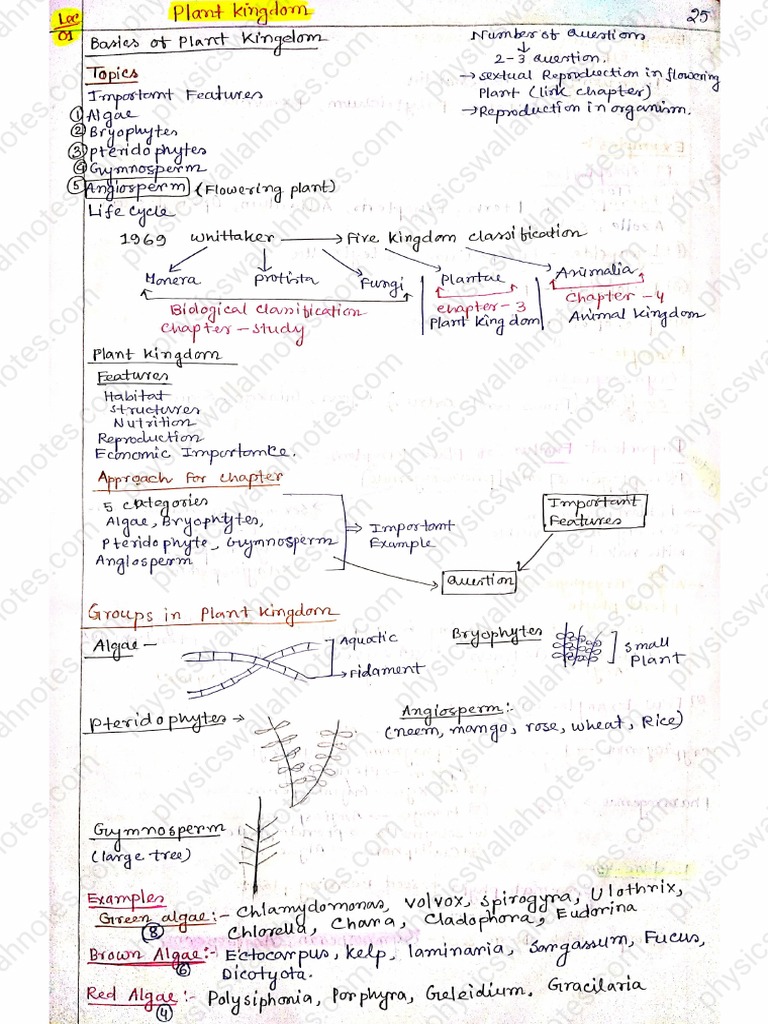 Lec 01
Plant kingdom
25
Basics of Plant Kingdom
Number of Questions
2-3 Question.
→ Sextual Reproduction in flowering
Plant (link chapter)
→ Reproduction in organism.
Topics
Important Features
① Algae
② Bryophytes
③ Pteridophytes
④ Gymnosperm
⑤ Angiosperm (Flowering plant)
Life cycle
1969 Whittaker → Five kingdom classification
Monera Protista Fungi Plantae Animalia
Biological classification
Chapter - study
chapter-3
Plant Kingdom
Chapter -4
Animal Kingdom
Plant kingdom
Features
Habitat
structures
Nutrition
Reproduction
Economic Importomke.
Approach for chapter
5 categories
Algae, Bryophytes,
Pteridophyte, Gymnosperm
Angiosperm
⇒ Important
Example
Important
Features
Question
Groups in Plant Kingdom
Algae -
Aquatic
Fidament
Bryophytes
Small
Plant
Pteridophytes →
Angiosperm:-
(neem, mango, rose, wheat, Rice)
Gymnosperm
(large tree)
Examples
Green algae:- Chlamydomonas, Volvox, Spirogyra, Ulothrix,
Chlorella, Chara, Cladophora, Eudorina
⑧
Brown Algae:- Ectocarpus, kelp, laminaria, Sargassum, Fucus,
Dicotyota.
⑥
Red Algae:- Polysiphonia, Porphyra, Geleidium. Gracilaria
④
physicswallahnotes.com